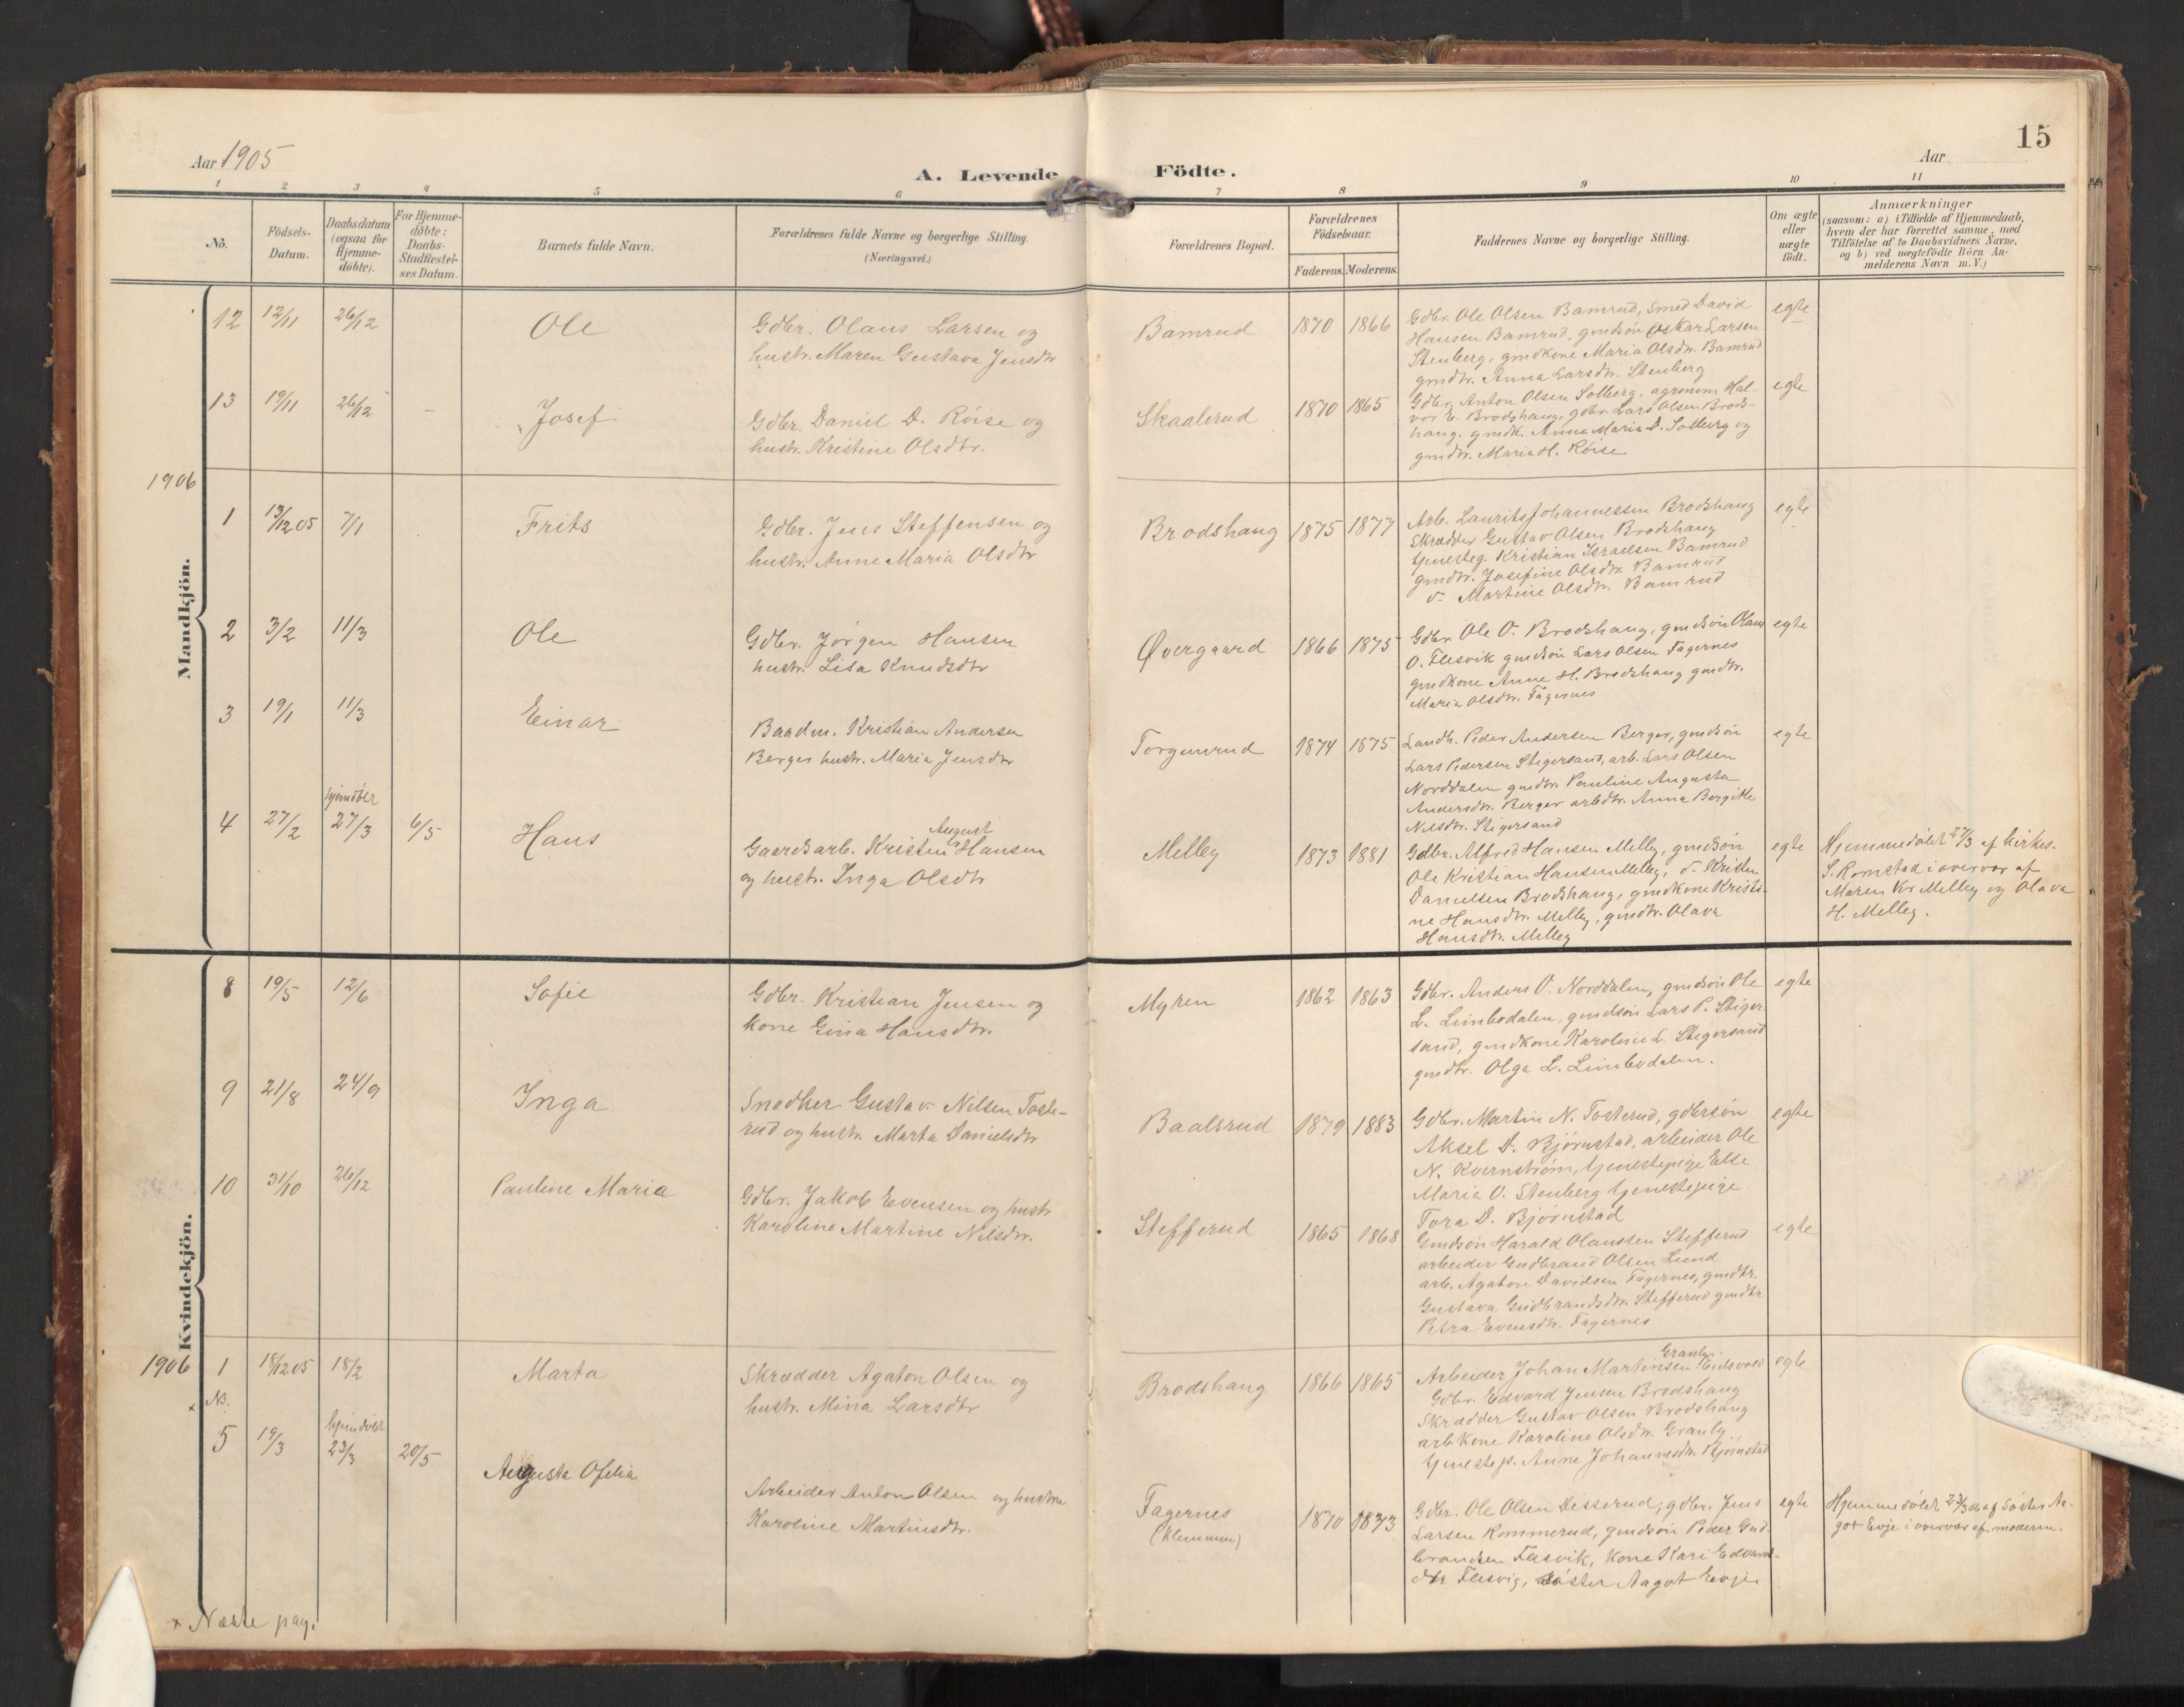 15
Aar 1905
A. Levende Födte.
Aar
1 2 3 4 5 6 7 8 9 10 11
Nö.
Födsels-Datum.
Daabsdatum (ogsaa for Hjemme-döbte).
For Hjemme-döbte: Daabs-Stadfestel-ses Datum.
Barnets fulde Navn.
Forældrenes fulde Navne og borgerlige Stilling. (Næringsvei.)
Forældrenes Bopæl.
Forældrenes Födselsaar.
Faderens. Moderens.
Faddernes Navne og borgerlige Stilling.
Om ægte eller uægte födt.
Anmærkninger
(saasom: a) i Tilfælde af Hjemmedaab,
hvem der har forrettet samme, med
Tilföielse af to Daabsvidners Navne,
og b) ved uægtefödte Börn An-
melderens Navn m. V.)
Mandkjön.
12 12/11 26/12 Ole
Gdbr. Olaus Larsen og
hustr. Maren Gustava Jensdtr
Bamrud 1870 1866
Gdbr. Ole Olsen Bamrud, Smed David
Hansen Bamrud, gmdsøn Oskar Larsen
Stenberg, gmdkone Maria Olsdtr. Bamrud
gmdtr. Anna Larsdtr. Stenberg
egte
13 19/11 26/12 - Josef
Gdbr. Daniel D. Røise og
hustr. Kristine Olsdtr.
Skaalerud 1870 1865
Gdbr. Anton Olsen Solberg, agronom Hal-
vor E. Brodshaug, gdbr. Lars Olsen Brods-
haug. gmdk. Anne Maria D. Solberg og
gmdtr. Maria H. Røise
egte
1906
1 13/12 05 7/1 Frits
Gdbr. Jens Steffensen og
hustr. Anne Maria Olsdtr
Brodshaug 1875 1877
Arb. Laurits Johannessen Brodshaug
Skrædder Gustav Olsen Brodshaug
tjenesteg. Kristian Israelsen Bamrud
gmdtr. Josefine Olsdtr. Bamrud
d- Martine Olsdtr. Bamrud
egte
2 3/2 11/3 Ole
Gdbr. Jørgen Hansen
hustr. Lisa Knudsdtr
Øvergaard 1866 1875
Gdbr. Ole O. Brodshaug, gmdsøn Olaus
O. Flesvik gmdsøn Lars Olsen Fagernes
gmdkone Anne H. Brodshaug gmdtr.
Maria Olsdtr. Fagernes
egte
3 19/1 11/3 Einar
Baadm. Kristian Andersen
Berger hustr. Maria Jensdtr
Torgunrud 1874 1875
Landh. Peder Andersen Berger, gmdsøn
Lars Pedersen Stigersand, arb. Lars Olsen
Norddalen gmdtr. Pauline Augusta
Andersdtr. Berger arbdtr. Anna Bergitte
Nilsdtr. Stigersand
egte
hjemdøbt
4 27/2 27/3 6/5 Hans
August
Gaardsarb. Kristen Hansen
og hustr. Inga Olsdtr
Melby 1873 1881
Gdbr. Alfred Hansen Melby, gmdsøn
Ole Kristian Hansen Melby, d- Kristen
Danielsen Brodshaug, gmdkone Kristi-
ne Hansdtr. Melby, gmdtr. Olava
Hansdtr. Melby
egte
Hjemmedøbt 27/3 af kirkes.
S. Romstad i overvær af
Maren Kr Melby og Olava
H. Melby.
Kvindekjön.
8 19/5 12/6 Sofie
Gdbr. Kristian Jensen og
kone Gina Hansdtr.
Myren 1862 1863
Gdbr. Anders O. Norddalen, gmdsøn Ole
L. Limbodalen, gmdsøn Lars P. Stiger
sand, gmdkone Karoline L. Stigersand
gmdtr. Olga L. Limbodalen.
egte
9 21/8 24/9 Inga
Snedker Gustav Nilsen Toste-
rud og hustr. Marta Danielsdtr
Baalsrud 1879 1883
Gdbr. Martin N. Tosterud, gdbrsøn
Aksel D. Bjørnstad, arbeider Ole
N. Kvernstrøm, tjenestepige Else
Maria O. Stenberg tjenestepige
Tora D. Bjørnstad
egte
10 31/10 26/12 Pauline Maria
Gdbr. Jakob Evensen og hustr
Karoline Martine Nilsdtr.
Stefferud 1865 1868
Gmdsøn Harald Olaussen Stefferud
arbeider Gudbrand Olsen Lund
arb. Agaton Davidsen Fagernes, gmdtr.
Gustava Gudbrandsdtr. Stefferud gmdtr
Petra Evensdtr. Fagernes
egte
1906
1 18/12 05 18/2 Marta
Skrædder Agaton Olsen og
hustr. Mina Larsdtr
Brodshaug 1866 1865
Granby.
Arbeider Johan Martinsen Eidsvold
Gdbr. Edvard Jensen Brodshaug
Skrædder Gustav Olsen Brodshaug
arb. kone Karoline Olsdtr. Granby.,
tjenestep. Anne Johannesdtr. Bjørnstad
egte
x NB.
hjemdøbt
5 19/3 23/3 20/5 Augusta Ofelia
Arbeider Anton Olsen og hustru
Karoline Martinsdtr.
Fagernes
(Klemmen)
1870 1873
Gdbr. Ole Olsen Disserud, gdbr. Jens
Larsen Kommerud, gmdsøn Peder Gud-
brandsen Flesvik, Kone Kari Edvards-
dtr Flesvig, søster Aagot Evje
egte
Hjemmedøbt 23/3 06 af Søster Aa-
got Evje i overvær af moderen.
x Næste pag.